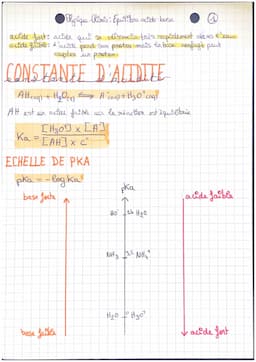 Physique Chimie: Équilibre acide base ①
acide fort: acide qui se dissocie très rapidement dans l'eau
acide faible: l'acide perd son proton mais la base conjugée peut
capter un proton.
CONSTANTE D'ACIDITE
AH(aq) + H₂O(l) ⇌ A⁻(aq) + H₃O⁺(aq)
AH est un acide faible car la réaction est équilibrée
Ka = [H₃O⁺] x [A⁻]
[AH] x c°
ECHELLE DE PKA
pKa = -log Ka
pKa
base forte
acide faible
HO⁻ 14 H₂O
NH₃ 9,2 NH₄⁺
H₂O 0 H₃O⁺
base faible
acide fort